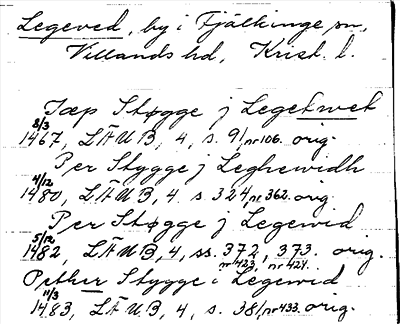 Legeved, by i Fjälkinge sn,
Villands hd, Krist. l.
Jæp Støgge j Legetwet
8/3
1467, LÄUB, 4, s. 91, nr 106. orig.
Per Stygge j Leghewidh
4/12
1480, LÄUB, 4. s. 324, nr 362. orig.
Per Støgge j Legewid
5/12
1482, LÄUB, 4, ss. 372, 373. orig.
nr 423, nr 424.
Pether Stygge i Legewid
11/3
1483, LÄUB, 4, s. 381, nr 433. orig.